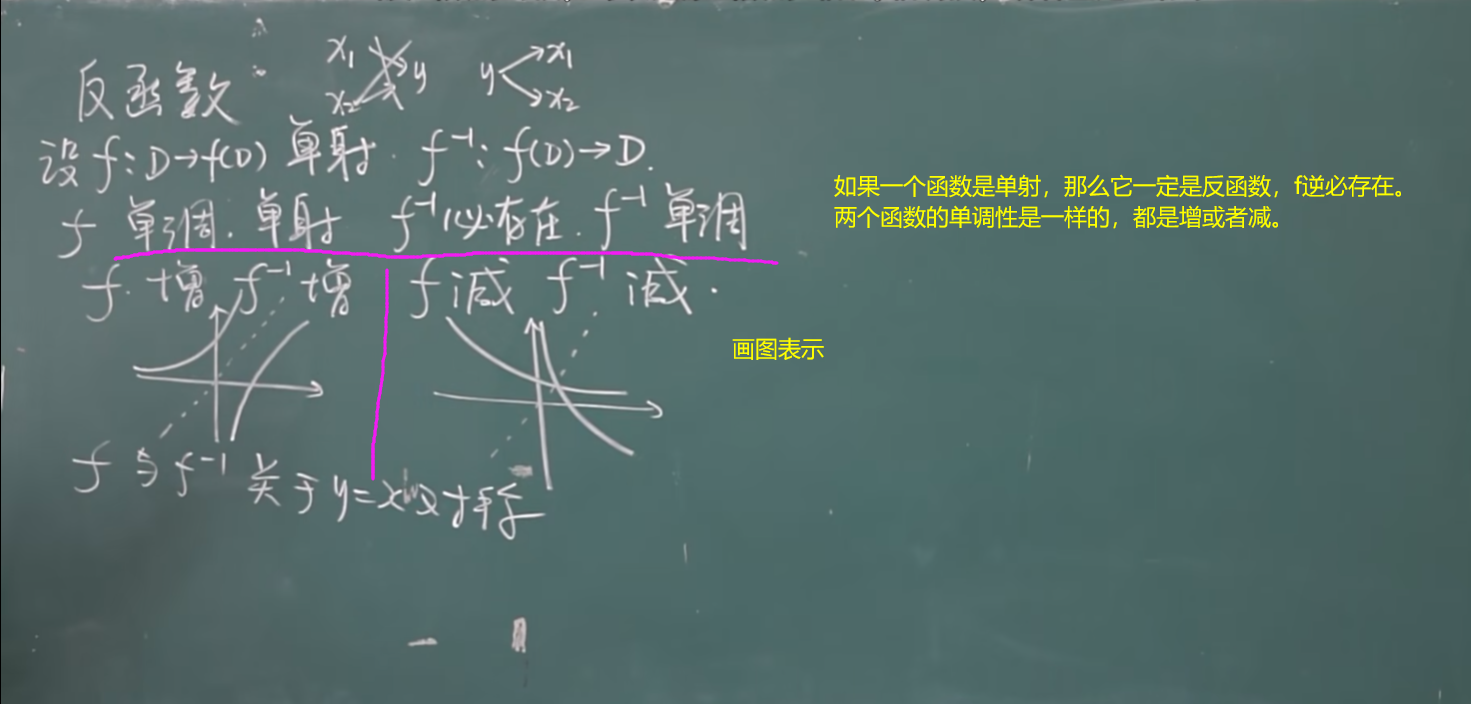 反函数:
x₁ x₂ y y x₁ x₂
设 f: D→f(D) 单射. f⁻¹: f(D)→D.
f 单调. 单射 f⁻¹必存在. f⁻¹ 单调
f. 增 f⁻¹ 增 f 减 f⁻¹ 减.
f 与 f⁻¹ 关于 y=x 对称
如果一个函数是单射，那么它一定是反函数，f逆必存在。
两个函数的单调性是一样的，都是增或者减。
画图表示